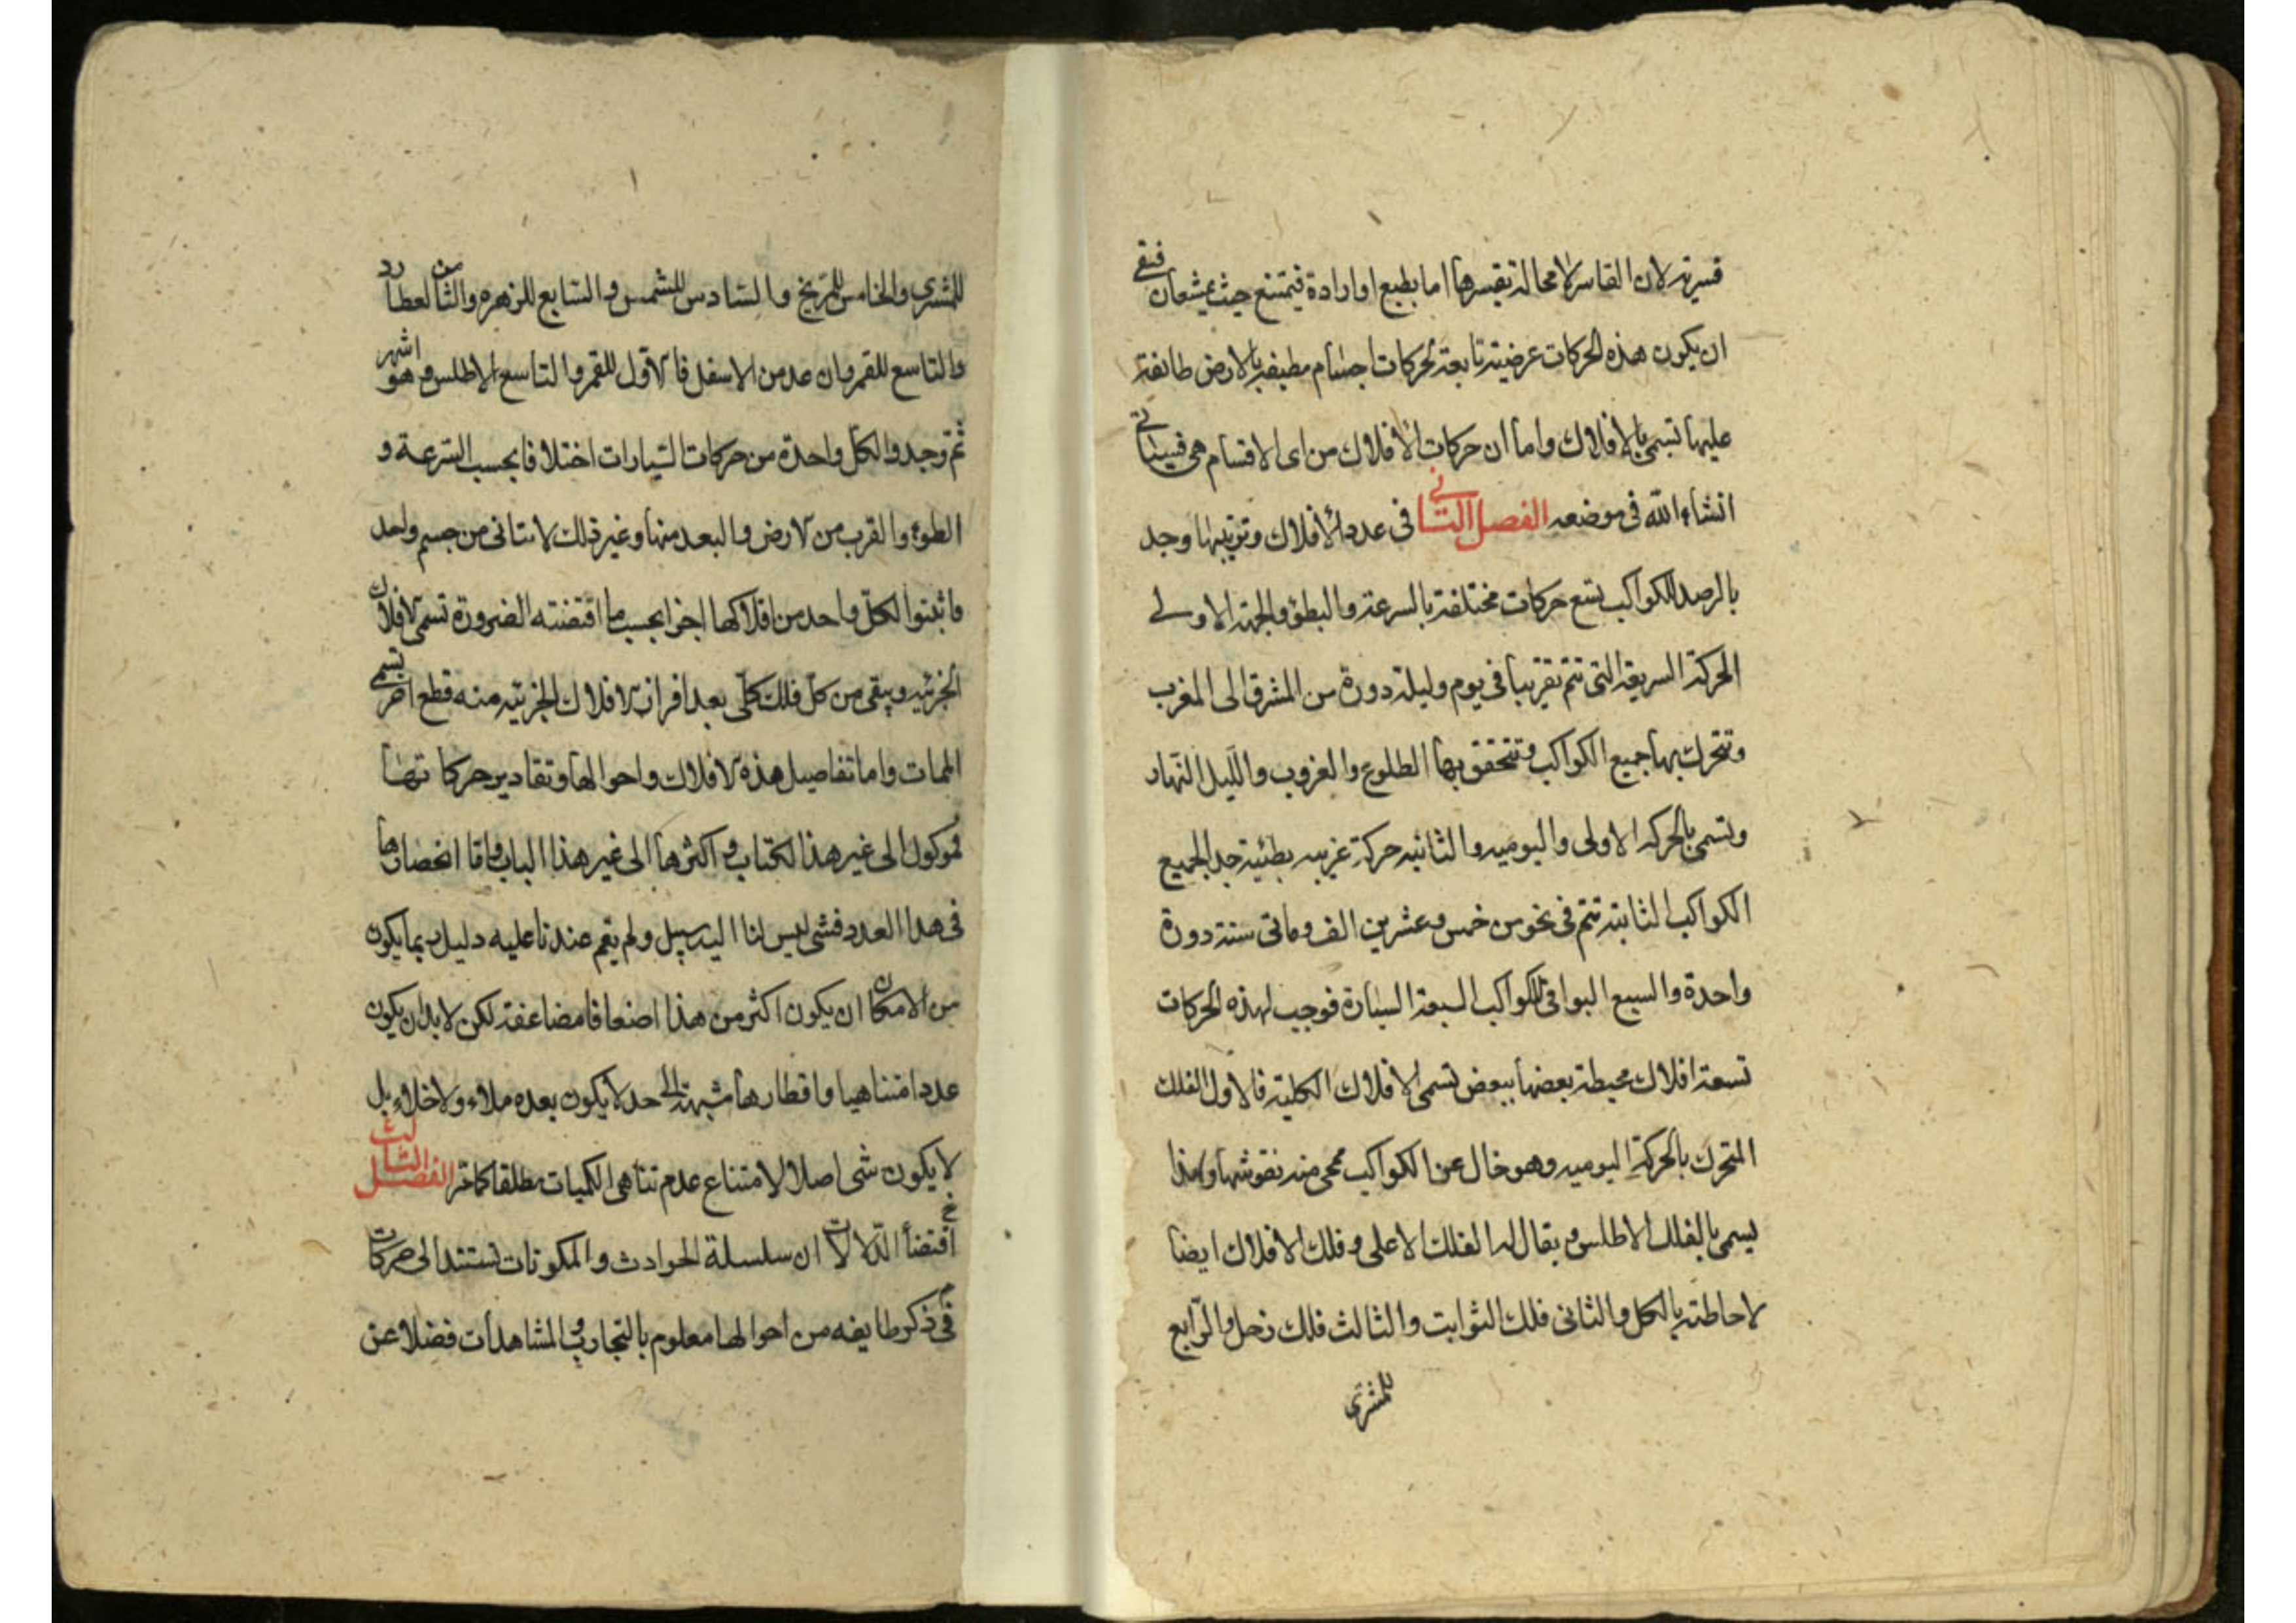 قسرية لان القاسر لا محالة تقسرها اما بطبع او ارادة فيمتنع حيث يمتنعان فبقى
ان يكون هذه الحركات عرضية تابعة لحركات اجسام مطيفة بالارض طائفة
عليها تسمى بالافلاك واما ان حركات الافلاك من اى الاقسام هى فسياتى
انشاء الله فى موضعه الفصل الثانى فى عدد الافلاك وترتيبها وجد
بالرصد للكواكب تسع حركات مختلفة بالسرعة والبطؤ والجهة الاولى
الحركة السريعة التى تتم تقريبا فى يوم وليلة دورة من المشرق الى المغرب
وتتحرك بها جميع الكواكب وتتحقق بها الطلوع والغروب والليل النهار
وتسمى بالحركة الاولى واليومية والثانية حركة غربيه بطيئة جدا لجميع
الكواكب الثابتة تتم فى نحو من خمس وعشرين الف وماتى سنة دورة
واحدة والسبع البواقى للكواكب السبعة السيارة فوجب لهذه الحركات
تسعة افلاك محيطة بعضها ببعض تسمى الافلاك الكلية فالاول الفلك
المتحرك بالحركة اليوميه وهو خال عن الكواكب ممحى منه نقوشها ولهذا
يسمى بالفلك الاطلس و يقال له الفلك الاعلى و فلك الافلاك ايضا
لاحاطته بالكل والثانى فلك الثوابت والثالث فلك زحل والرابع
للمشترى
للمشترى والخامس للمريخ والسادس للشمس والسابع للزهره والثامن لعطارد
والتاسع للقمر وان عد من الاسفل فالاول للقمر والتاسع الاطلس وهو اشهر
ثم وجدوا لكل واحدة من حركات السيارات اختلافا بحسب السرعة و
الطوء والقرب من الارض والبعد منها وغير ذلك لا تتاتى من جسم واحد
فاثبتوا لكل واحد من افلاكها اجزا بحسب ما اقتضته الضرورة تسمى الافلاك
الجزئيه ويبقى من كل فلك كلى بعد افراز الافلاك الجزئيه منه قطع اخر تسمى
المات واما تفاصيل هذه الافلاك واحوالها وتقادير حركاتها
فموكول الى غير هذا الكتاب و اكثرها الى غير هذا الباب واما انحصارها
فى هذا العدد فشى ليس لنا اليه سبيل ولم يقم عندنا عليه دليل ربما يكون
من الامكان ان يكون اكثر من هذا اضعافا مضاعفة لكن لابد ان يكون
عددا متناهيا و اقطارها منتهية الى حد لا يكون بعده ملاء ولا خلاء بل
لا يكون شى اصلا لامتناع عدم تناهى الكميات مطلقا كما مر الفصل الثالث
فى اقتضا الدلالات ان سلسلة الحوادث والمكونات تستند الى حركات
فى ذكر طايفه من احوالها معلوم بالتجارب و المشاهدات فضلا عن